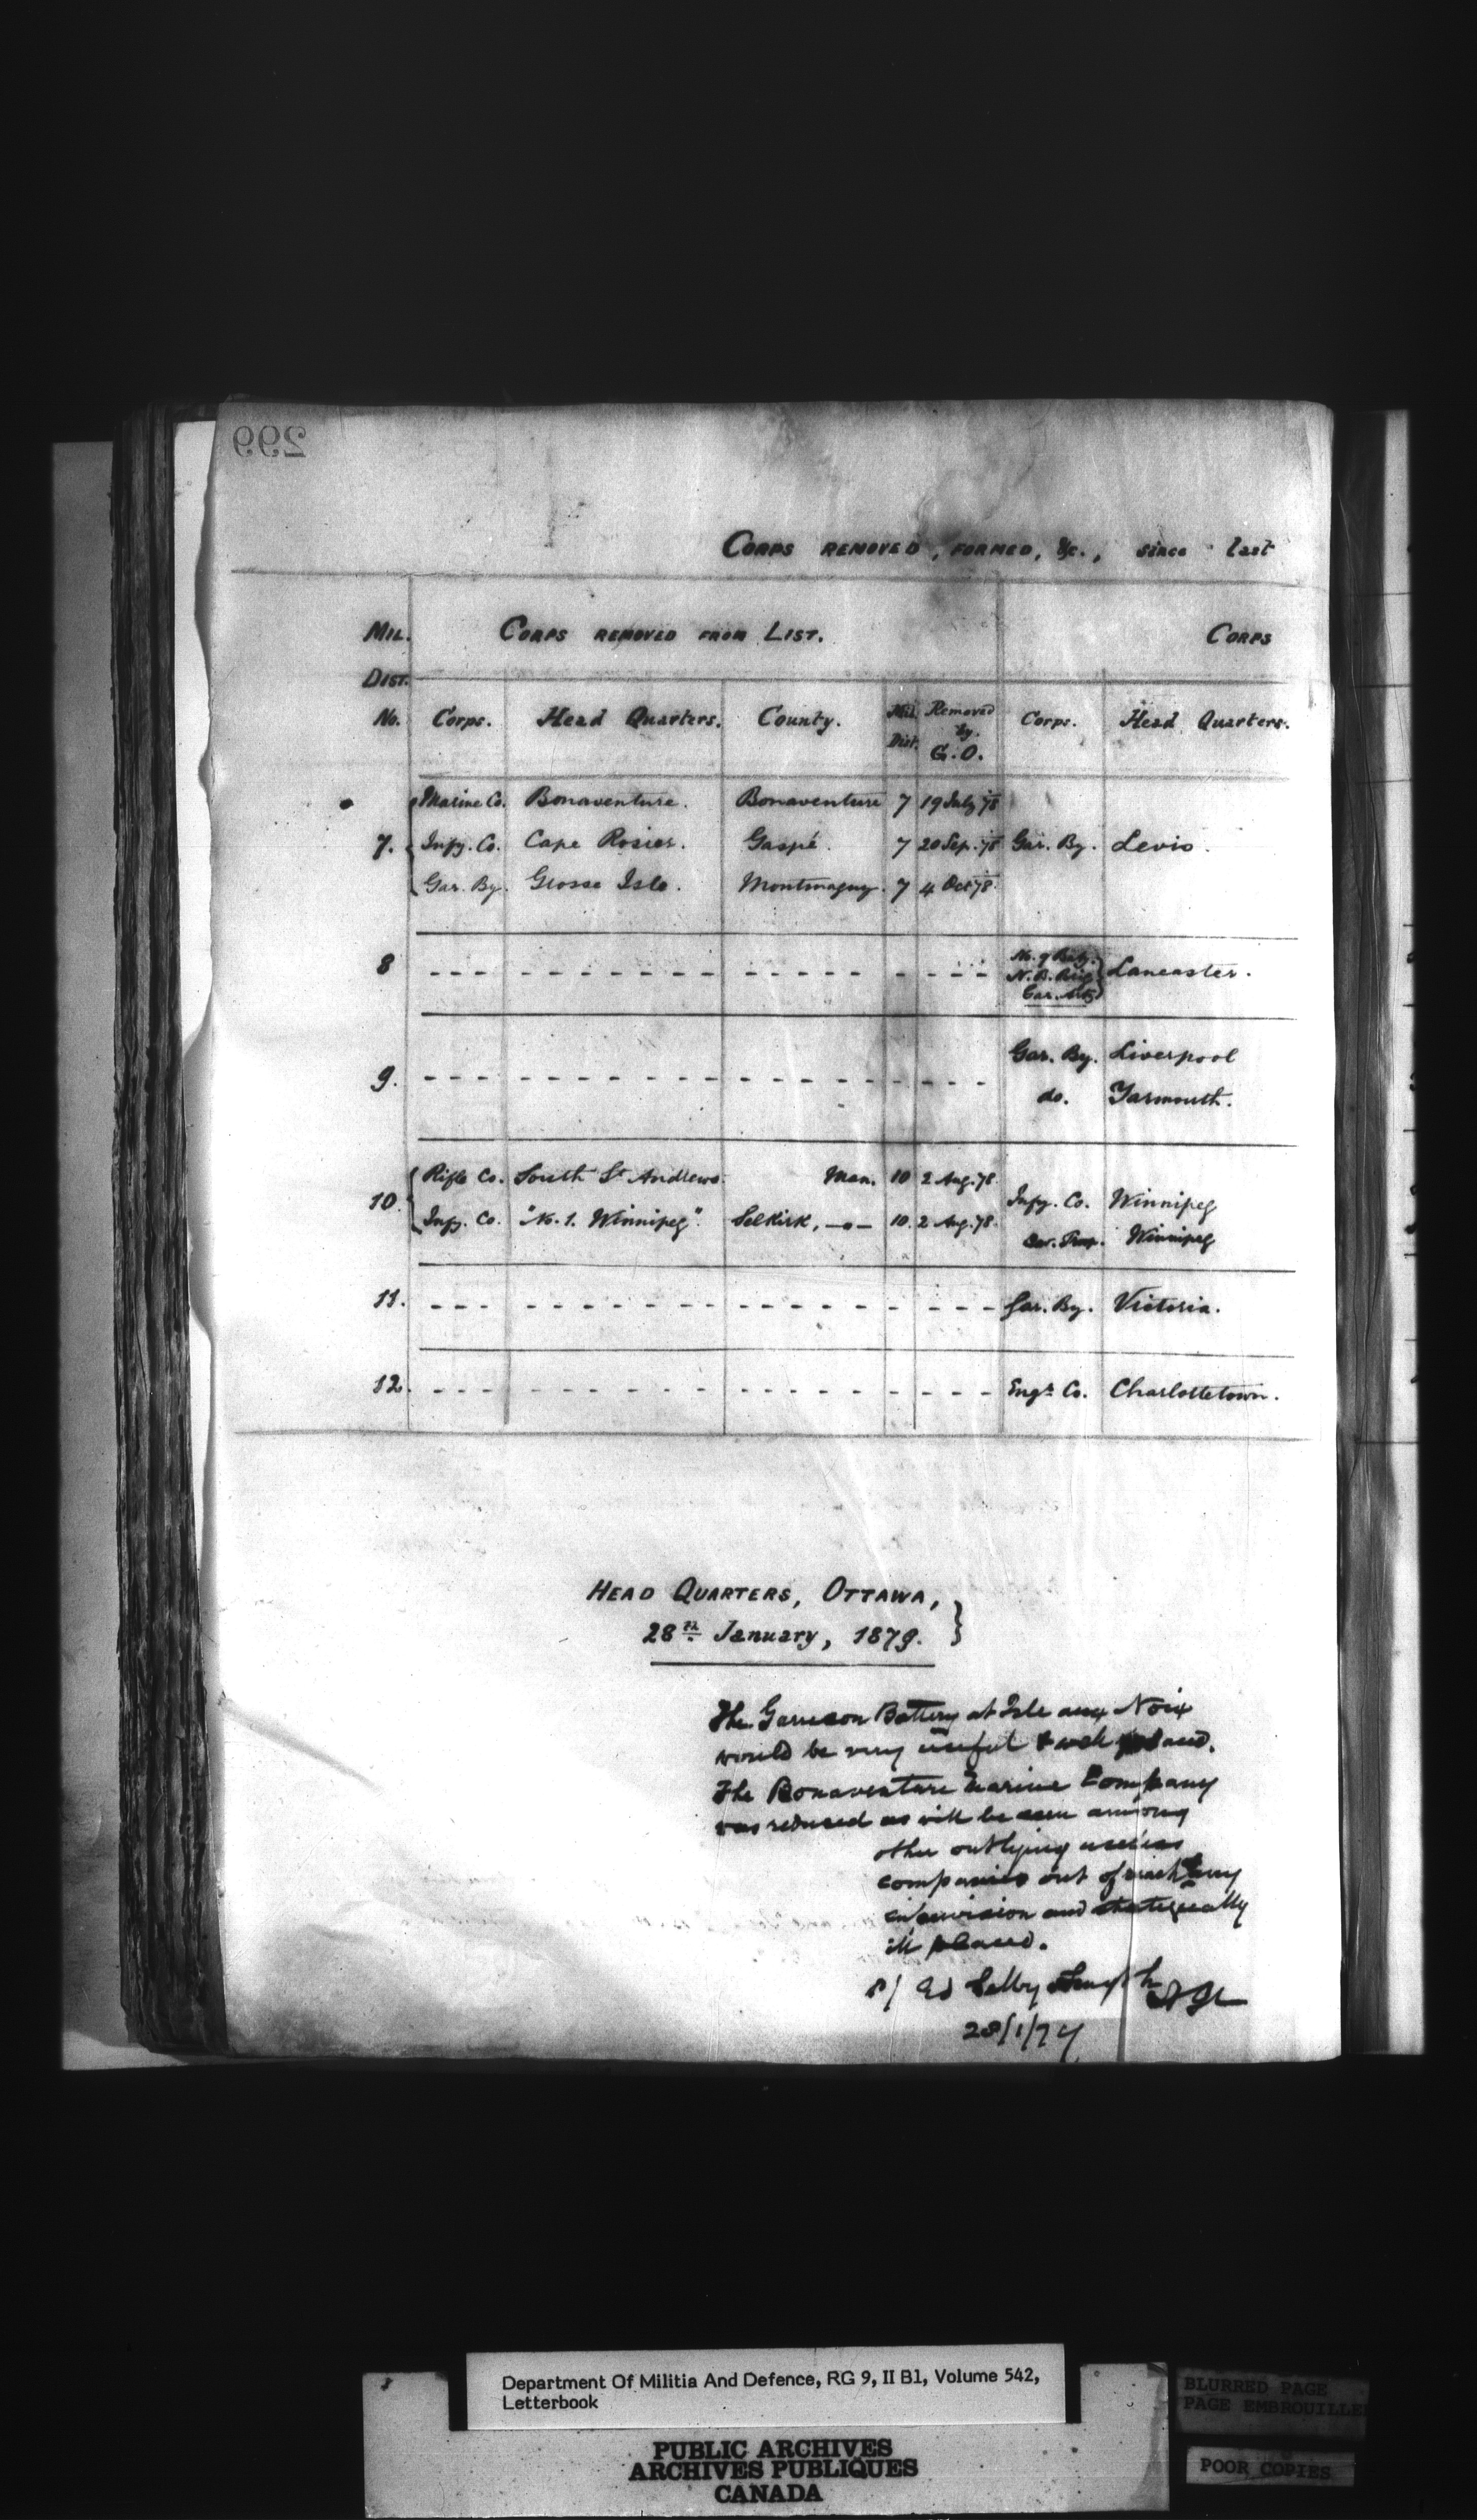 299
CORPS REMOVED, FORMED, &c., since last
MIL. DIST. No.
CORPS REMOVED FROM LIST.
CORPS
Corps. Head Quarters. County. Mil. Dist. Removed by G.O. Corps. Head Quarters.
7. Marine Co. Bonaventure. Bonaventure 7 19 July 78
Infy. Co. Cape Rosier. Gaspé. 7 20 Sep. 78 Gar. By. Levis.
Gar. By. Grosse Isle. Montmagny. 7 4 Oct 78.
8 - - - - - - - - - - - - - - - - - - - - No. 9 Baty. N.B. Brig. Gar. Arty } Lancaster.
9. - - - - - - - - - - - - - - - - - - - - Gar. By. Liverpool
do. Yarmouth.
10. Rifle Co. South St. Andrews. Man. 10 2 Aug. 78
Infy. Co. "No. 1. Winnipeg". Selkirk, —o— 10. 2 Aug. 78. Infy. Co. Winnipeg
Winnipeg
11. - - - - - - - - - - - - - - - - - - - - Gar. By. Victoria.
12. - - - - - - - - - - - - - - - - - - - - Engr. Co. Charlottetown.
HEAD QUARTERS, OTTAWA, }
28th January, 1879.
The Garrison Battery at Isle aux Noix
would be very useful & well placed.
The Bonaventure Marine Company
was reduced as will be seen among
other outlying useless
companies out of reach any
supervision and strategically
ill placed.
s/ Ed Selby Smyth
28/1/79
Department Of Militia And Defence, RG 9, II B1, Volume 542,
Letterbook
PUBLIC ARCHIVES
ARCHIVES PUBLIQUES
CANADA
BLURRED PAGE
PAGE EMBROUILLE
POOR COPIES